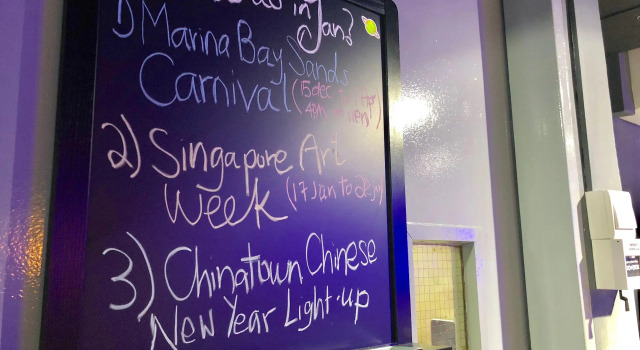 in Jan?
1) Marina Bay Sands
Carnival (15 dec
2) Singapore Art
Week (17 Jan to
3) Chinatown Chinese
New Year Light-up